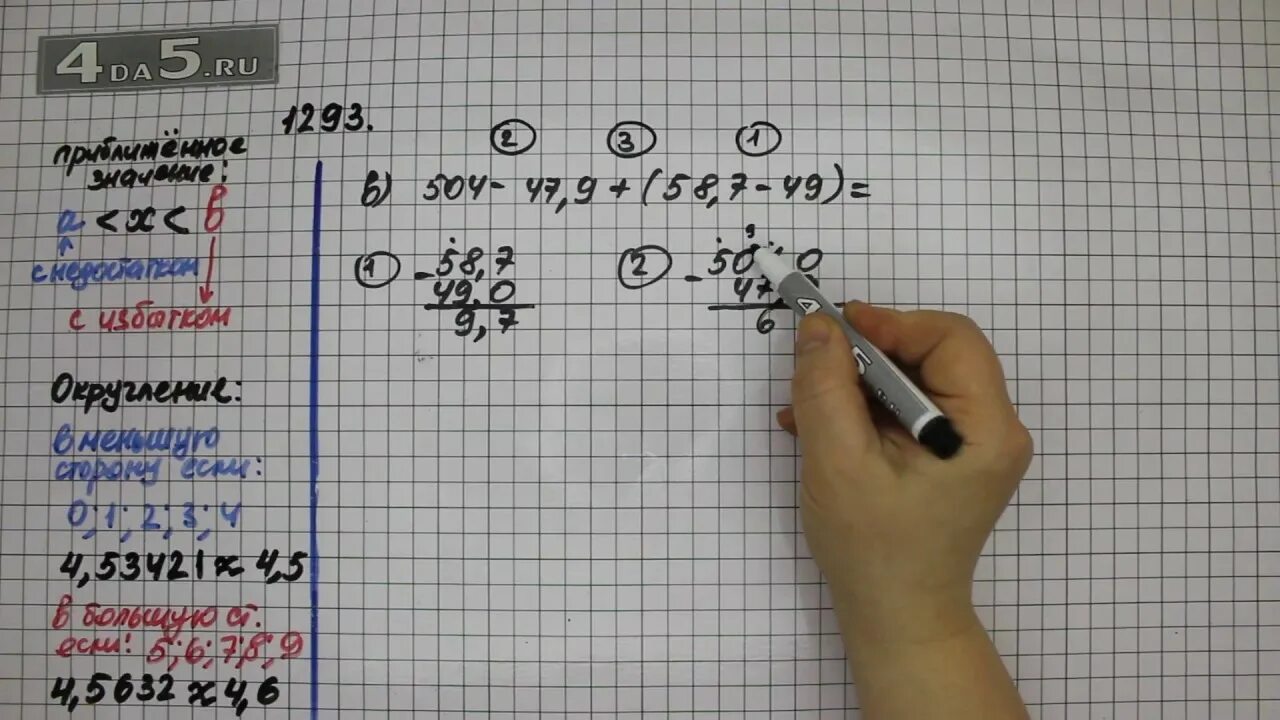 4DA5.RU
1293.
приближённое
значение:
a < x < b
с недостатком
с избытком
Округление:
в меньшую
сторону если:
0; 1; 2; 3; 4
4,53421 ≈ 4,5
в большую ст.
если: 5; 6; 7; 8; 9
4,5632 ≈ 4,6
2 3 1
в) 504 - 47,9 + (58,7 - 49) =
1
- 58,7
49,0
9,7
2
9
- 50 0
47
6